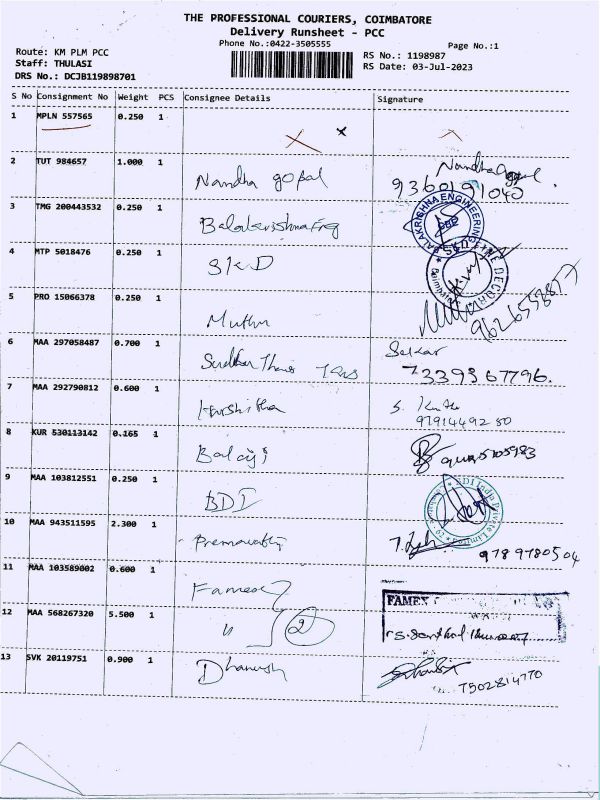 THE PROFESSIONAL COURIERS, COIMBATORE
Delivery Runsheet - PCC
Phone No.:0422-3505555
Page No.:1
Route: KM PLM PCC
Staff: THULASI
DRS No.: DCJB119898701
RS No.: 1198987
RS Date: 03-Jul-2023
S No Consignment No Weight PCS Consignee Details Signature
1 MPLN 557565 0.250 1
2 TUT 984657 1.000 1 Nandha gopal
9360191040
3 TMG 200443532 0.250 1
BALAKRISHNA ENGINEERING
4 MTP 5018476 0.250 1 SKD
5 PRO 15066378 0.250 1 Muthu
6 MAA 297058487 0.700 1 Sekar
7339367796.
7 MAA 292790812 0.600 1 Harshitha
8 KUR 530113142 0.165 1 Balaji
9 MAA 103812551 0.250 1 BDI
BDI India Private Limited
10 MAA 943511595 2.300 1
9789780504
11 MAA 103589002 0.600 1
FAMEX
12 MAA 568267320 5.500 1 " 2
13 SVK 20119751 0.900 1 Dhanush
7502814770